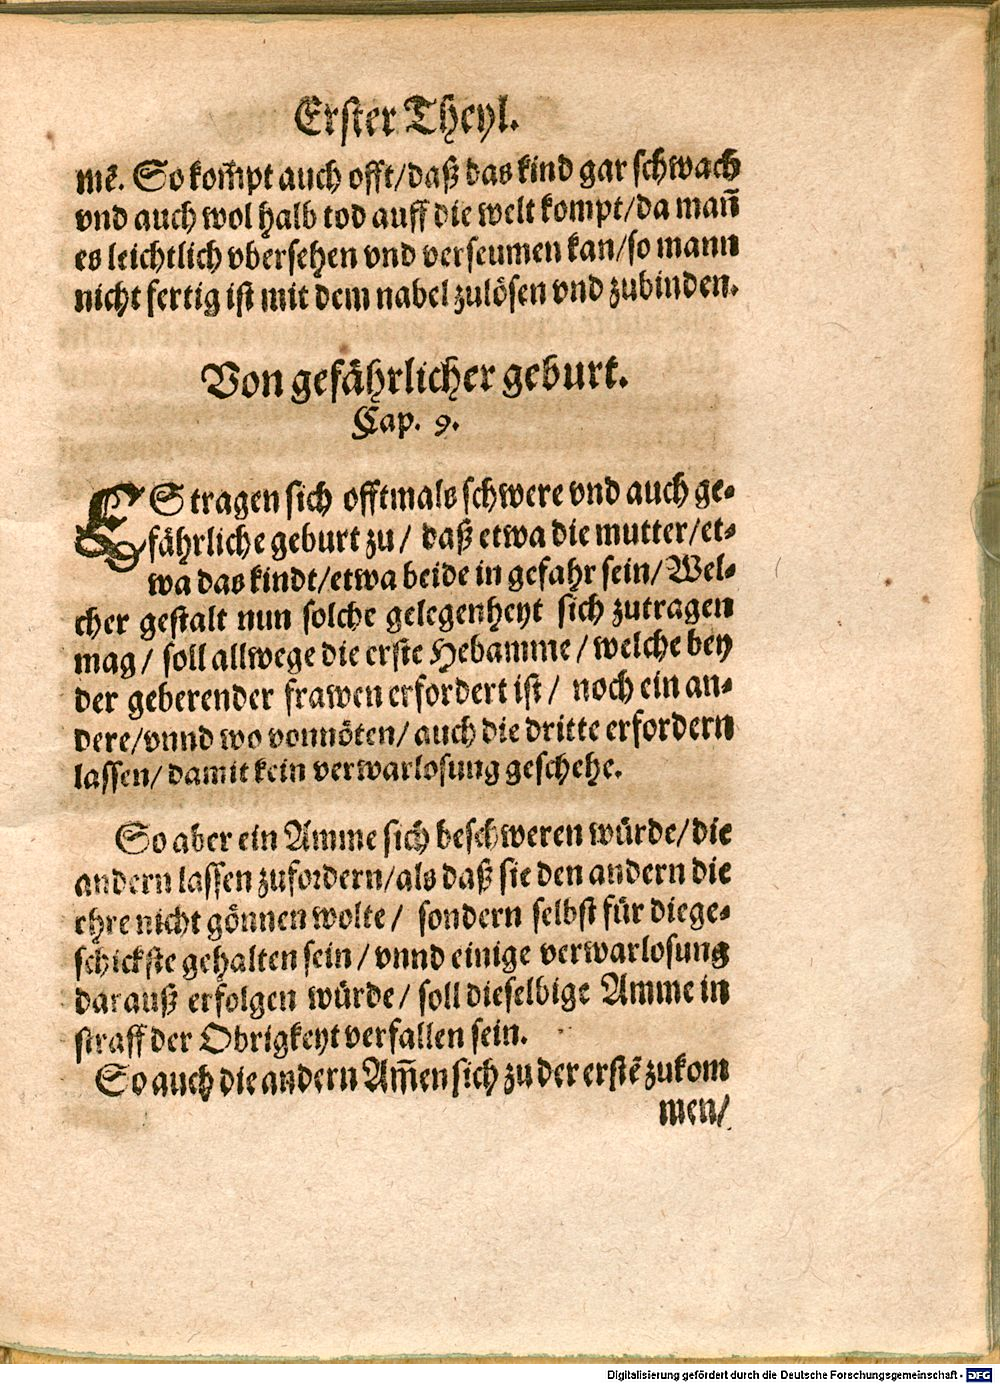 Erster Theyl.
mē. So kom̃pt auch offt/daß das kind gar schwach
vnd auch wol halb tod auff die welt kompt/da mañ
es leichtlich vbersehen vnd verseumen kan/so mann
nicht fertig ist mit dem nabel zulösen vnd zubinden.
Von gefährlicher geburt.
Cap. 9.
ES tragen sich offtmals schwere vnd auch ge⸗
fährliche geburt zu/ daß etwa die mutter/et⸗
wa das kindt/etwa beide in gefahr sein/ Wel⸗
cher gestalt nun solche gelegenheyt sich zutragen
mag/ soll allwege die erste Hebamme/ welche bey
der geberender frawen erfordert ist/ noch ein an⸗
dere/vnnd wo vonnöten/ auch die dritte erfordern
lassen/ damit kein verwarlosung geschehe.
So aber ein Amme sich beschweren würde/die
andern lassen zufordern/als daß sie den andern die
ehre nicht gönnen wolte/ sondern selbst für die ge⸗
schickste gehalten sein/ vnnd einige verwarlosung
darauß erfolgen würde/ soll dieselbige Amme in
straff der Obrigkeyt verfallen sein.
So auch die andern Am̃en sich zu der erstē zukom
men/
Digitalisierung gefördert durch die Deutsche Forschungsgemeinschaft - DFG